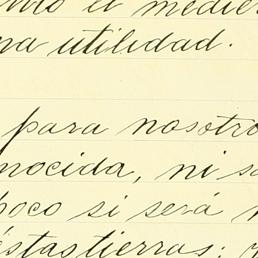 el medie
na utilidad.
para nosotro
nocida, ni sa
poco si será
éstas tierras; y